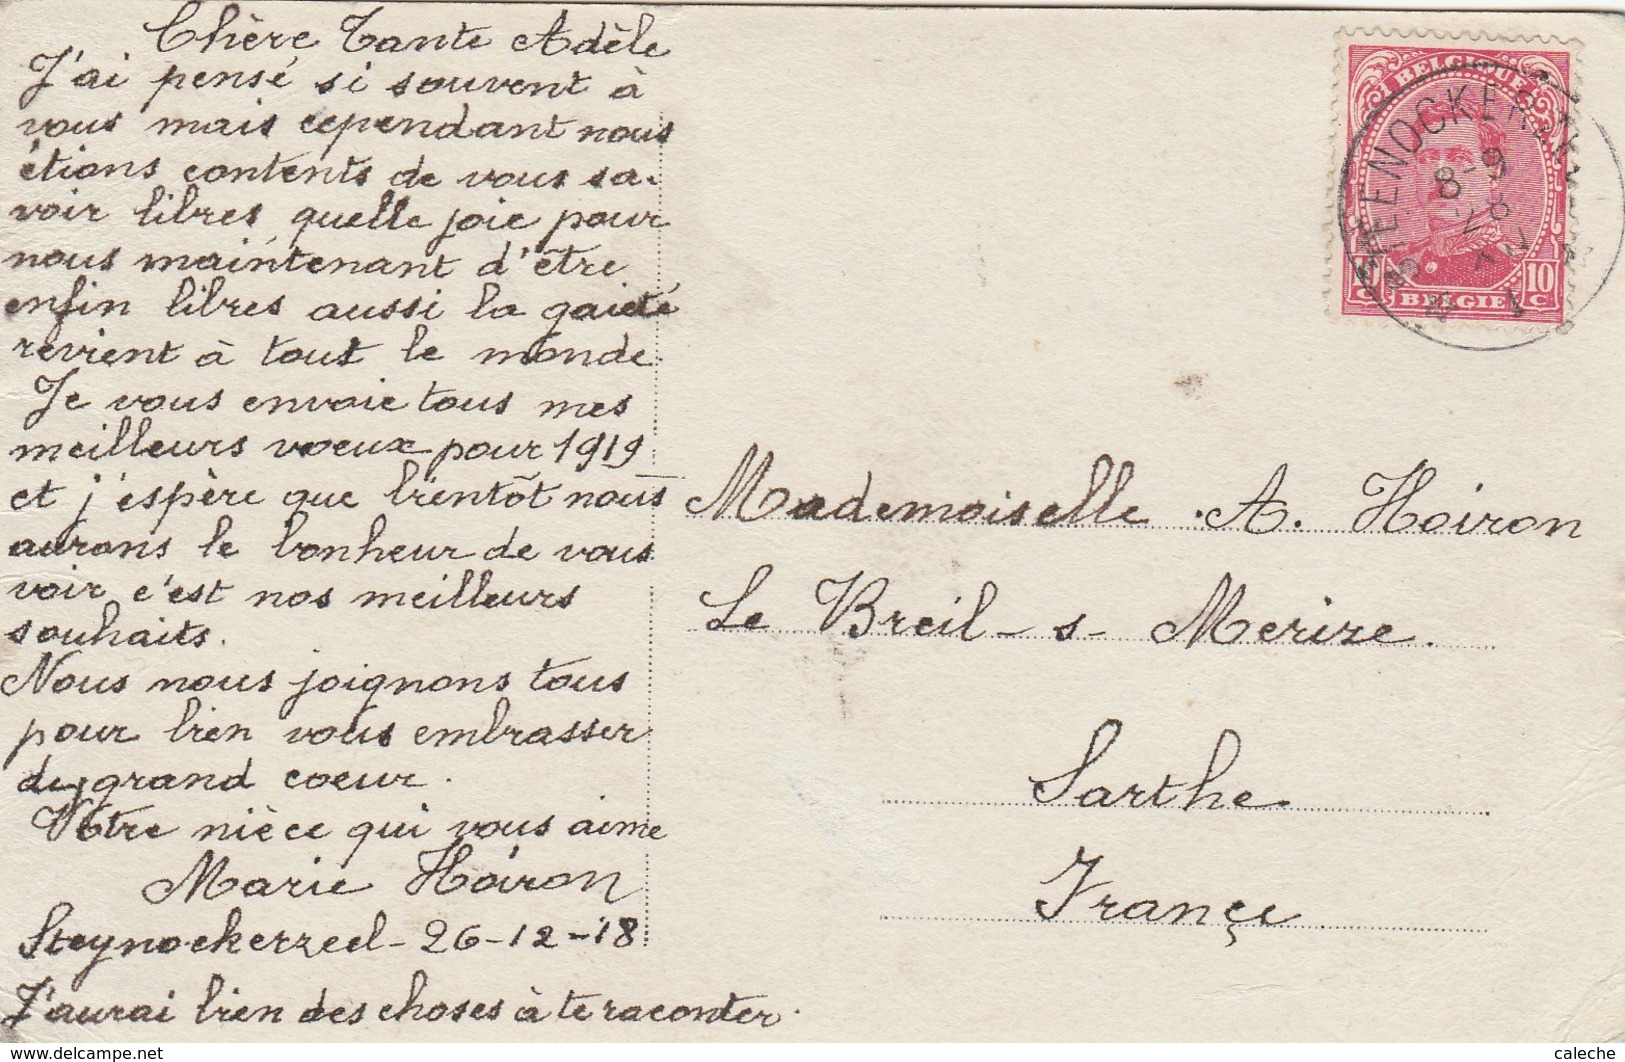 Chère Tante Adèle
J'ai pensé si souvent à
vous mais cependant nous
étions contents de vous sa-
voir libres quelle joie pour
nous maintenant d'être
enfin libres aussi la gaieté
revient à tout le monde.
Je vous envoie tous mes
meilleurs voeux pour 1919
et j'espère que bientôt nous
aurons le bonheur de vous
voir c'est nos meilleurs
souhaits.
Nous nous joignons tous
pour bien vous embrasser
de grand coeur.
Votre nièce qui vous aime
Marie Hoiron
Steynockerzeel - 26-12-18
J'aurai bien des choses à te raconter.
BELGIQUE
10 C
BELGIE
STEENOCKERZEEL
8-9
Mademoiselle A. Hoiron
Le Breil-s-Merize.
Sarthe
France
https://www.delcampe.net
caleche